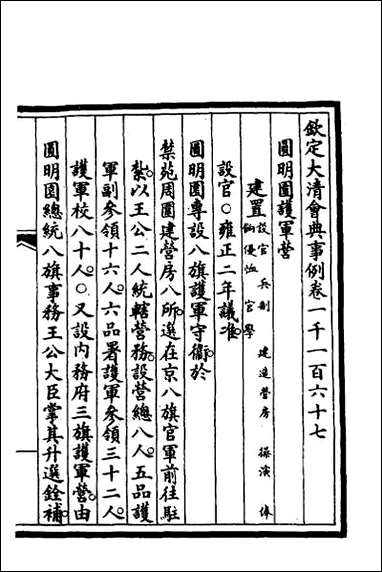 欽定大清會典事例卷一千一百六十七
圓明園護軍營
建置設官 兵制 建造營房 操演 俸
餉優恤 官學
設官○雍正二年議准
圓明園專設八旗護軍守衞於
禁苑周圍建營房八所選在京八旗官軍前往駐
紮以王公二人統轄營務設營總八人五品護
軍副參領十六人六品署護軍參領三十二人
護軍校八十人○又設內務府三旗護軍營由
圓明園總統八旗事務王公大臣掌其升選銓補